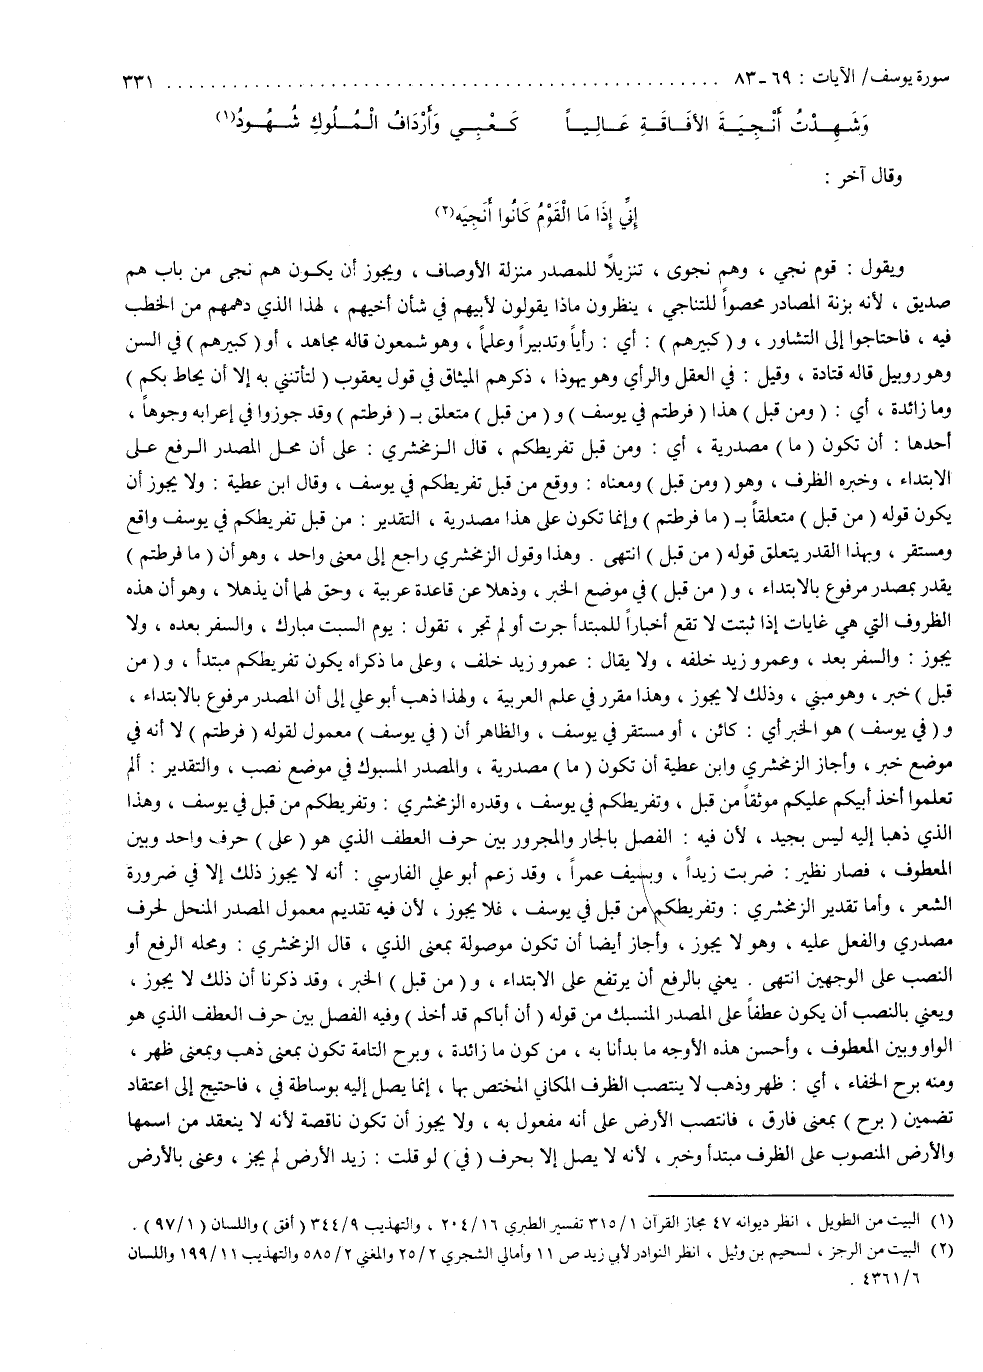 سورة يوسف/ الآيات : ٦٩ـ٨٣ ................................................ ٣٣١
وَشَهِدْتُ أَنْجِيَةَ الأفَاقَةِ عَالِياً كَعْبِي وَأَرْدَافُ الْمُلُوكِ شُهُودُ(١)
وقال آخر :
إِنِّي إِذَا مَا الْقَوْمُ كَانُوا أَنْجِيَه(٢)
ويقول : قوم نجي ، وهم نجوى ، تنزيلًا للمصدر منزلة الأوصاف ، ويجوز أن يكون هم نجى من باب هم
صديق ، لأنه بزنة المصادر محصواً للتناجي ، ينظرون ماذا يقولون لأبيهم في شأن أخيهم ، لهذا الذي دهمهم من الخطب
فيه ، فاحتاجوا إلى التشاور ، و( كبيرهم ) : أي : رأياً وتدبيراً وعلماً ، وهو شمعون قاله مجاهد ، أو( كبيرهم ) في السن
وهو روبيل قاله قتادة ، وقيل : في العقل والرأي وهو يهوذا ، ذكرهم الميثاق في قول يعقوب ( لتأتنني به إلا أن يحاط بكم )
وما زائدة ، أي : ( ومن قبل ) هذا ( فرطتم في يوسف ) و( من قبل ) متعلق بـ ( فرطتم ) وقد جوزوا في إعرابه وجوهاً ،
أحدها : أن تكون ( ما ) مصدرية ، أي : ومن قبل تفريطكم ، قال الزمخشري : على أن محل المصدر الرفع على
الابتداء ، وخبره الظرف ، وهو ( ومن قبل ) ومعناه : ووقع من قبل تفريطكم في يوسف ، وقال ابن عطية : ولا يجوز أن
يكون قوله ( من قبل ) متعلقاً بـ ( ما فرطتم ) وإنما تكون على هذا مصدرية ، التقدير : من قبل تفريطكم في يوسف واقع
ومستقر ، وبهذا القدر يتعلق قوله ( من قبل ) انتهى . وهذا وقول الزمخشري راجع إلى معنى واحد ، وهو أن ( ما فرطتم )
يقدر بمصدر مرفوع بالابتداء ، و( من قبل ) في موضع الخبر ، وذهلا عن قاعدة عربية ، وحق لهما أن يذهلا ، وهو أن هذه
الظروف التي هي غايات إذا ثبتت لا تقع أخباراً للمبتدأ جرت أو لم تجر ، تقول : يوم السبت مبارك ، والسفر بعده ، ولا
يجوز : والسفر بعد ، وعمرو زيد خلفه ، ولا يقال : عمرو زيد خلف ، وعلى ما ذكراه يكون تفريطكم مبتدأ ، و( من
قبل ) خبر ، وهو مبني ، وذلك لا يجوز ، وهذا مقرر في علم العربية ، ولهذا ذهب أبو علي إلى أن المصدر مرفوع بالابتداء ،
و( في يوسف ) هو الخبر أي : كائن ، أو مستقر في يوسف ، والظاهر أن ( في يوسف ) معمول لقوله ( فرطتم ) لا أنه في
موضع خبر ، وأجاز الزمخشري وابن عطية أن تكون ( ما ) مصدرية ، والمصدر المسبوك في موضع نصب ، والتقدير : ألم
تعلموا أخذ أبيكم عليكم موثقاً من قبل ، وتفريطكم في يوسف ، وقدره الزمخشري : وتفريطكم من قبل في يوسف ، وهذا
الذي ذهبا إليه ليس بجيد ، لأن فيه : الفصل بالجار والمجرور بين حرف العطف الذي هو ( على ) حرف واحد وبين
المعطوف ، فصار نظير : ضربت زيداً ، وبسيف عمراً ، وقد زعم أبو علي الفارسي : أنه لا يجوز ذلك إلا في ضرورة
الشعر ، وأما تقدير الزمخشري : وتفريطكم من قبل في يوسف ، فلا يجوز ، لأن فيه تقديم معمول المصدر المنحل لحرف
مصدري والفعل عليه ، وهو لا يجوز ، وأجاز أيضا أن تكون موصولة بمعنى الذي ، قال الزمخشري : ومحله الرفع أو
النصب على الوجهين انتهى . يعني بالرفع أن يرتفع على الابتداء ، و( من قبل ) الخبر ، وقد ذكرنا أن ذلك لا يجوز ،
ويعني بالنصب أن يكون عطفاً على المصدر المنسبك من قوله ( أن أباكم قد أخذ ) وفيه الفصل بين حرف العطف الذي هو
الواو وبين المعطوف ، وأحسن هذه الأوجه ما بدأنا به ، من كون ما زائدة ، وبرح التامة تكون بمعنى ذهب وبمعنى ظهر ،
ومنه برح الخفاء ، أي : ظهر وذهب لا ينتصب الظرف المكاني المختص بها ، إنما يصل إليه بوساطة في ، فاحتيج إلى اعتقاد
تضمين ( برح ) بمعنى فارق ، فانتصب الأرض على أنه مفعول به ، ولا يجوز أن تكون ناقصة لأنه لا ينعقد من اسمها
والأرض المنصوب على الظرف مبتدأ وخبر ، لأنه لا يصل إلا بحرف ( في ) لو قلت : زيد الأرض لم يجز ، وعنى بالأرض
(١) البيت من الطويل ، انظر ديوانه ٤٧ مجاز القرآن ٣١٥/١ تفسير الطبري ٢٠٤/١٦ ، والتهذيب ٣٤٤/٩ ( أفق ) واللسان ( ٩٧/١ ) .
(٢) البيت من الرجز ، لسحيم بن وثيل ، انظر النوادر لأبي زيد ص ١١ وأمالي الشجري ٢٥/٢ والمغني ٥٨٥/٢ والتهذيب ١٩٩/١١ واللسان
٤٣٦١/٦ .